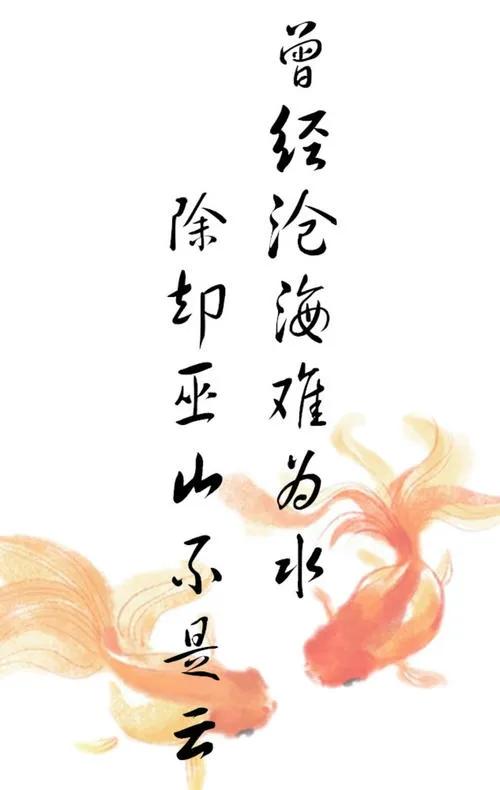 曾经沧海难为水
除却巫山不是云